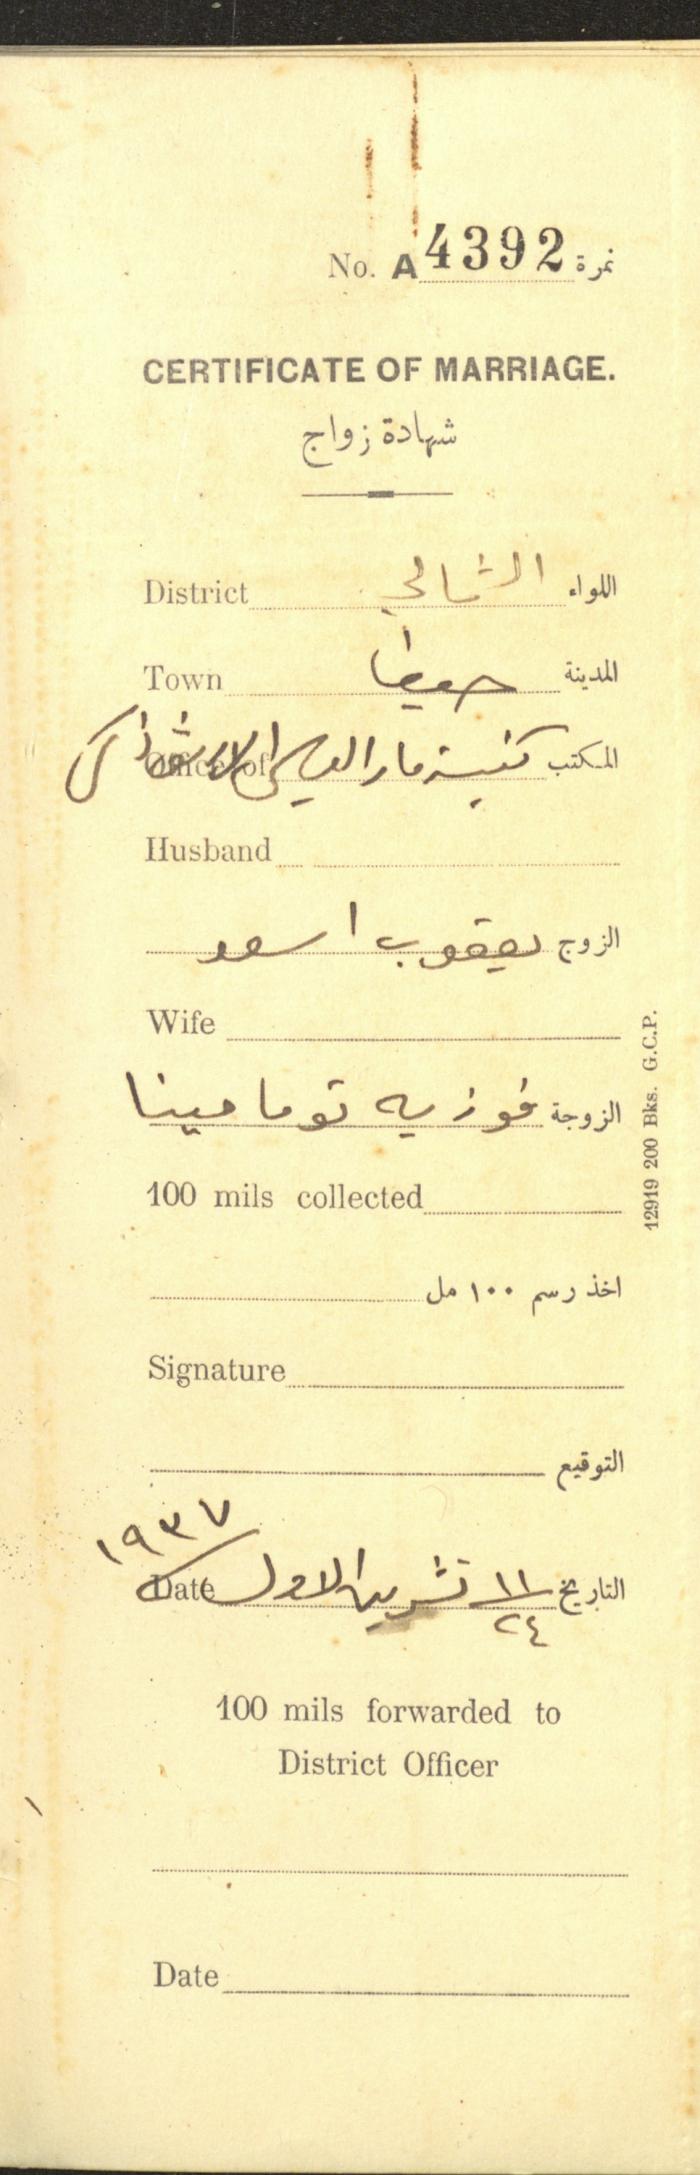 No. A 4392 نمرة
CERTIFICATE OF MARRIAGE.
شهادة زواج
District الشمالي اللواء
Town حيفا المدينة
Office of كنيسة مار الياس الارثوذكس المكتب
Husband
الزوج يعقوب اسعد
Wife
الزوجة فوزيه توما مينا
100 mils collected
اخذ رسم ١٠٠ مل
Signature
التوقيع
١٩٣٧
Date ١١/٢٤ تشرين الاول التاريخ
100 mils forwarded to
District Officer
Date
12919 200 Bks. G.C.P.